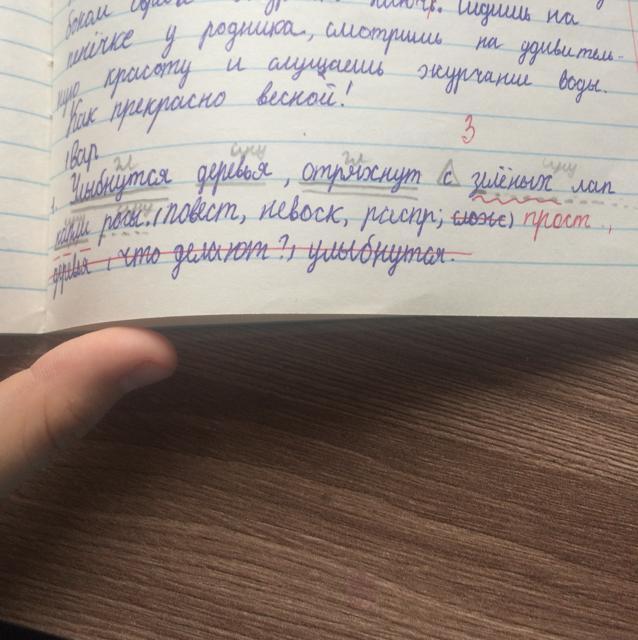 боком
ключ. Сидишь на
пенёчке у родника, смотришь на удивитель-
ную красоту и слушаешь журчание воды.
Как прекрасно весной!
3
1 вар
гл сущ гл сущ
1. Улыбнутся деревья, отряхнут с зелёных лап
капли росы. (повест, невоск, распр, слож) прост.,
деревья, что делают?, улыбнутся.